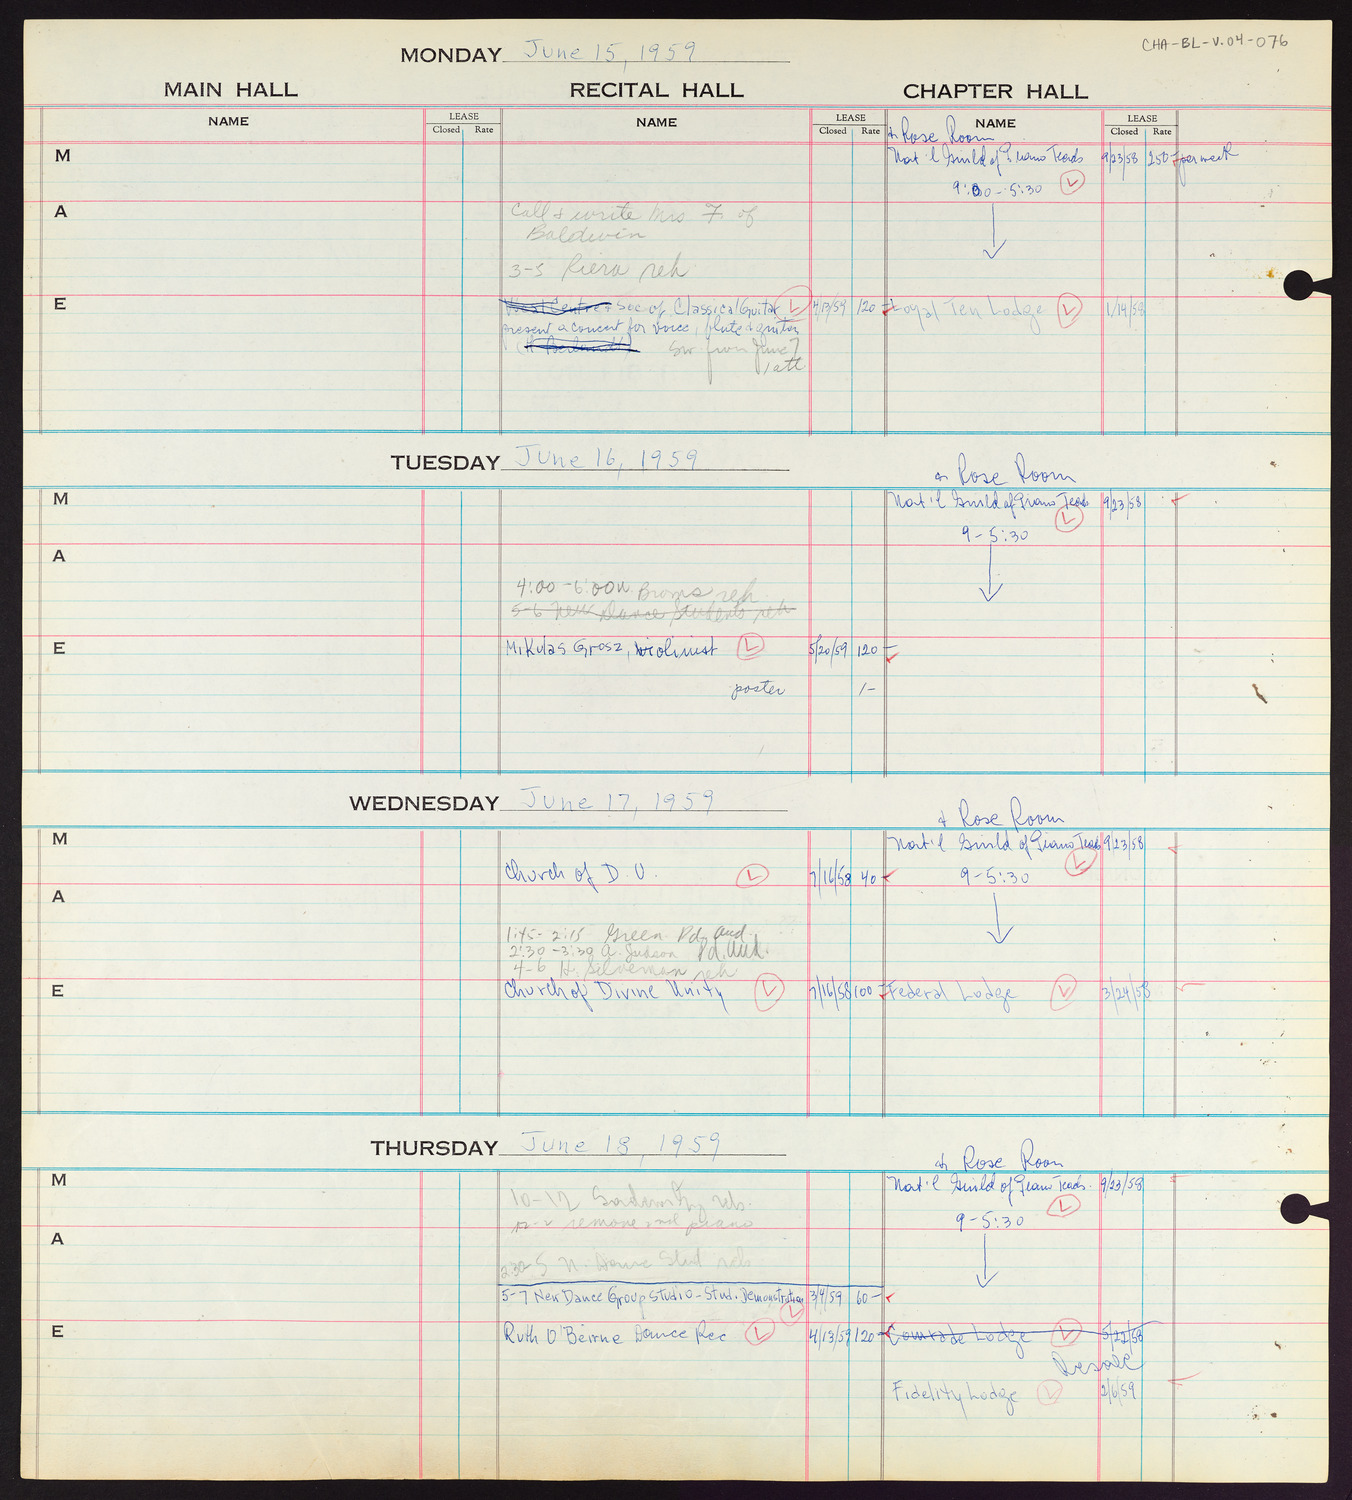 CHA-BL-V.04-076
MONDAY June 15, 1959
MAIN HALL RECITAL HALL CHAPTER HALL
NAME LEASE Closed Rate NAME LEASE Closed Rate NAME LEASE Closed Rate
+ Rose Room
M Nat'l Guild of Piano Teachs 9/23/58 250 - per week
9:00-5:30 L
A Call & write Mrs F. of
Baldwin
3-5 Riera reh
E Vocal Centre + Soc of Classical Guitar L 4/13/59 120 - Loyal Ten Lodge L 1/19/59
present a concert for voice, flute & guitar
Sw from June 7
1 att
TUESDAY June 16, 1959
+ Rose Room
M Nat'l Guild of Piano Teachs 9/23/58
L
9-5:30
A
4:00-6:00 reh
5-6 New Dance Students reh
E Mikulas Grosz, violinist L 5/20/59 120 -
poster 1-
WEDNESDAY June 17, 1959
+ Rose Room
M Nat'l Guild of Piano Teachs 9/23/58
L
Church of D. U. L 7/16/58 40 - 9-5:30
A
1:45-2:15 Green Pd. Aud.
2:30-3:30 A. Judson Pd. Aud.
4-6 H. Silverman reh
E Church of Divine Unity L 7/16/58 100 - Federal Lodge L 3/24/58
THURSDAY June 18, 1959
+ Rose Room
M Nat'l Guild of Piano Teachs. 9/23/58
10-12 reh. L
remove 2nd piano 9-5:30
A
2:30-5 N. Dance Stud reh
5-7 New Dance Group Studio - Stud. Demonstration 3/4/59 60 -
L
E Ruth O'Beirne Dance Rec L 4/13/59 120 - Comrade Lodge L 5/22/58
Fidelity Lodge L 2/6/59